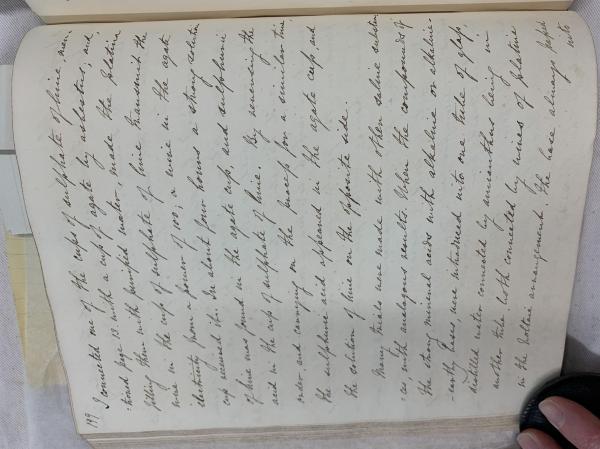 199
I connected one of the cups of sulphate of lime, men-
-tioned page 13 with a cup of agate by asbestus, and,
filling them with purified water, made the platina
wire in the cup of sulphate of lime transmit the
electricity from a power of 100; a wire in the agate
cup received it. In about four hours a strong solution
of lime was found in the agate cup, and sulphuric
acid in the cup of sulphate of lime. By reversing the
order, and carrying on the process for a similar time,
the sulphuric acid appeared in the agate cup, and
the solution of lime on the opposite side.
Many trials were made with other saline substan
-ces with analogous results. When the compounds of
the strong mineral acids with alkaline or alkaline-
-earthy bases were introduced into one tube of glass,
distilled water connected by amianthus being in
another tube, both connected by wires of platina
in the Voltaic arrangement, the base always passed
into